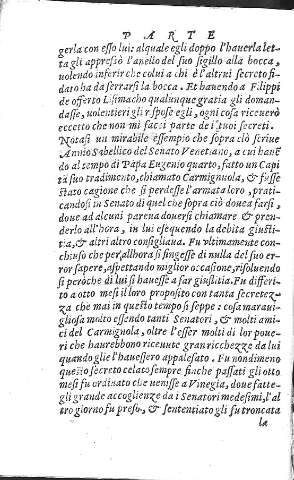 PARTE
gerla con esso lui: alquale egli doppo l'hauerla let-
ta gli appresiò l'anello del suo sigillo alla bocca,
uolendo inferir che colui a chi è l'altrui secreto fi-
dato ha da serrarsi la bocca. Et hauendo a Filippi
de offerto Lisimacho qualunque gratia gli doman-
dasse, uolentieri gli rispose egli, ogni cosa riceuerò
eccetto che non mi facci parte de i tuoi secreti.
Notasi un mirabile essempio che sopra ciò scriue
Annio Sabellico del Senato Venetiano, a cui hauē
do al tempo di Papa Eugenio quarto, fatto un Capi
ta suo tradimento, chiamato Carmignuola, & fusse
stato cagione che si perdesse l'armata loro, prati-
candosi in Senato di quel che sopra ciò douea farsi,
doue ad alcuni parena douersi chiamare & pren-
derlo all'hora, in lui esequendo la debita giusti-
tia, & altri altro consigliaua. Fu ultimamente con-
chiuso che per allhora si fingesse di nulla del suo er-
ror sapere, aspettando miglior occasione, risoluendo
si peròche di lui si hauesse a far giustitia. Fu differi-
to a otto mesi il loro proposito con tanta secretez-
za che mai in questo tempo si seppe: cosa maraui-
gliosa molto essendo tanti Senatori, & molti ami-
ci del Carmignola, oltre l'esser molti di lor poue-
ri che haurebbono riceuute gran ricchezze da lui
quando gli e l'hauessero appalesato. Fu nondimeno
questo secreto celato sempre finche passati gli otto
mesi fu ordinato che uenisse a Vinegia, doue fatte-
gli grande accoglienze da i Senatori medesimi, l'al
tro giorno fu preso, & sententiato gli fu troncata
la